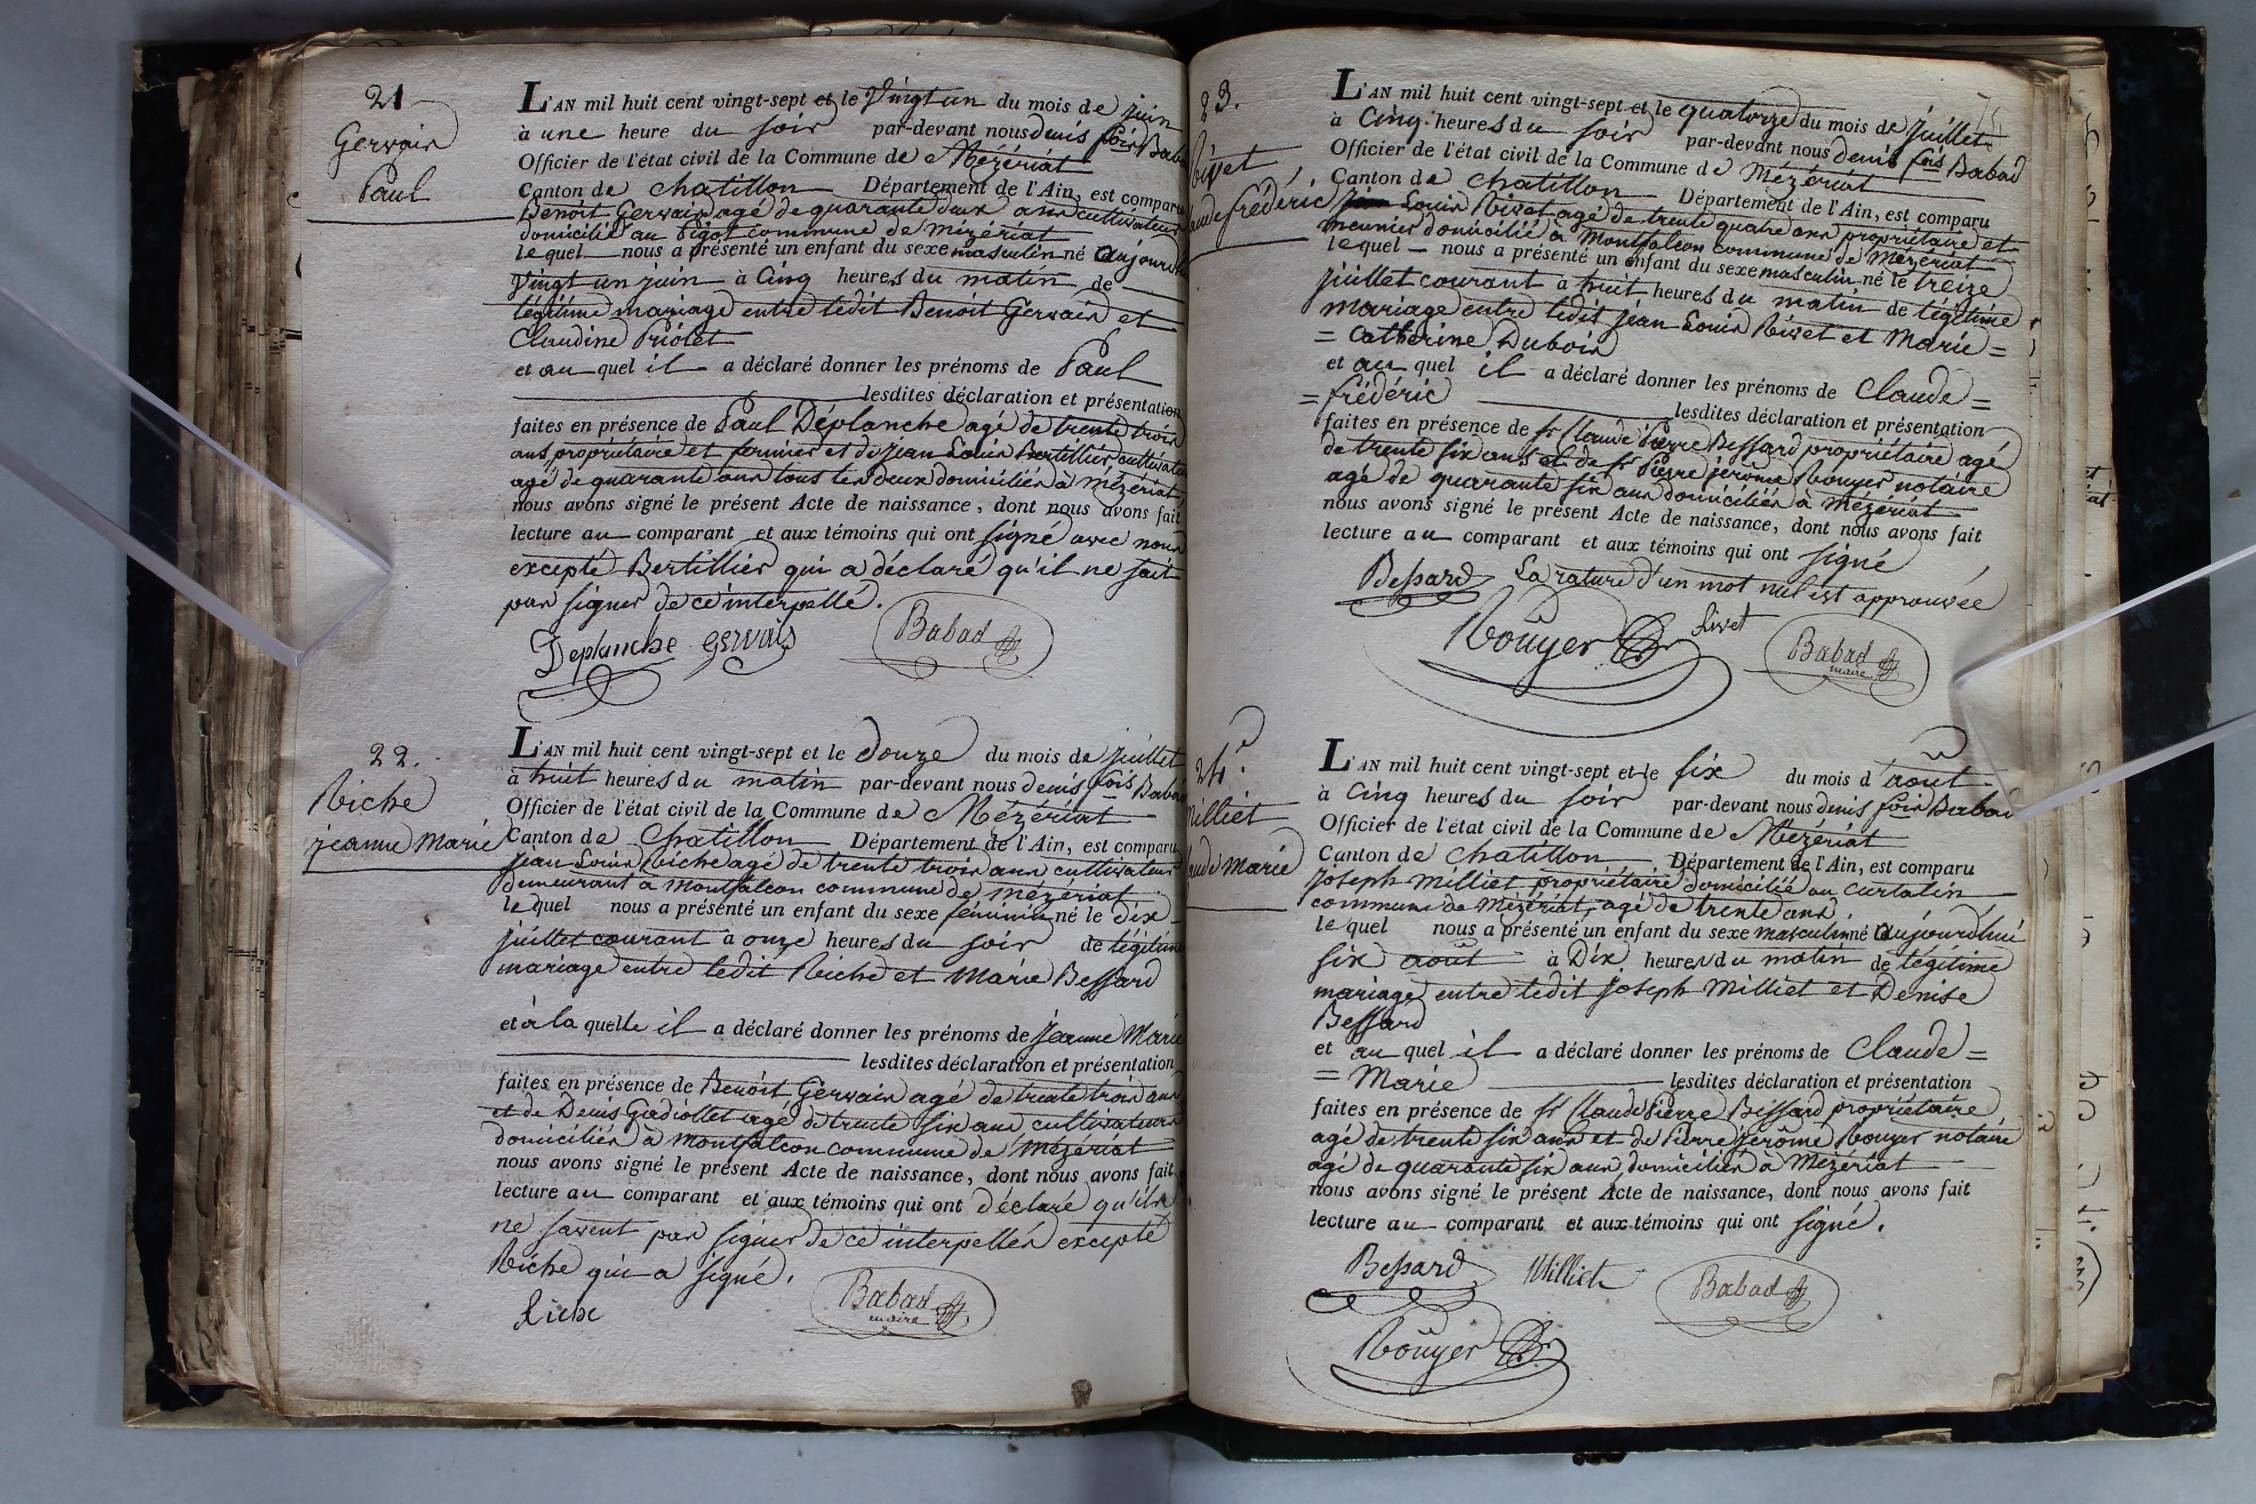 21
Gervais
Paul
L'AN mil huit cent vingt-sept et le Vingt un du mois de juin
à une heure du soir par-devant nous denis fois Baba
Officier de l'état civil de la Commune de Mézériat
Canton de Chatillon Département de l'Ain, est comparu
Benoit Gervais agé de quarante deux ans cultivateur
domicilié au Bigot commune de Mézériat
lequel nous a présenté un enfant du sexe masculin né aujourd
Vingt un juin à Cinq heures du matin de
légitime mariage entre ledit Benoit Gervais et
Claudine Priolet
et au quel il a déclaré donner les prénoms de Paul
lesdites déclaration et présentation
faites en présence de Paul Déplanche agé de trente trois
ans, propriétaire et fermier et de jean Louis Bertillier cultivate
agé de quarante ans tous les deux domiciliés à Mézériat,
nous avons signé le présent Acte de naissance, dont nous avons fait
lecture au comparant et aux témoins qui ont signé avec nous
excepté Bertillier qui a déclaré qu'il ne sait
pas signer de ce interpellé.
Deplanche Gervais Babad
22.
Riche
jeanne Marie
L'AN mil huit cent vingt-sept et le Douze du mois de juillet
à huit heures du matin par-devant nous denis fois Baba
Officier de l'état civil de la Commune de Mézériat
Canton de Chatillon Département de l'Ain, est comparu
jean Louis Riche agé de trente trois ans cultivateur
demeurant à Montfalcon commune de Mézériat
lequel nous a présenté un enfant du sexe féminin né le dix
juillet courant à onze heures du soir de légitime
mariage entre ledit Riche et Marie Bessard
et à la quelle il a déclaré donner les prénoms de jeanne Marie
lesdites déclaration et présentation
faites en présence de Benoit Gervais agé de trente trois ans
et de Denis Gadiollet agé de trente six ans cultivateurs
domiciliés à Montfalcon commune de Mézériat
nous avons signé le présent Acte de naissance, dont nous avons fait
lecture au comparant et aux témoins qui ont déclaré qu'ils
ne savent pas signer de ce interpellés excepté
Riche qui a signé.
Riche Babad
maire
23.
Rivet
aude frédéric
L'AN mil huit cent vingt-sept et le quatorze du mois de juillet
à Cinq heures du soir par-devant nous denis fois Babad
Officier de l'état civil de la Commune de Mézériat
Canton de Chatillon Département de l'Ain, est comparu
Louis Rivet agé de trente quatre ans propriétaire et
meunier domicilié à Montfalcon commune de Mézériat
lequel nous a présenté un enfant du sexe masculin né le treize
juillet courant à huit heures du matin de légitime
mariage entre ledit jean Louis Rivet et Marie =
= Catherine Dubois
et au quel il a déclaré donner les prénoms de Claude =
= frédéric
lesdites déclaration et présentation
faites en présence de sr Claude Pierre Bessard propriétaire agé
de trente six ans et de sr Pierre jerôme Rouyer notaire
agé de quarante six ans domiciliés à Mézériat
nous avons signé le présent Acte de naissance, dont nous avons fait
lecture au comparant et aux témoins qui ont signé
La rature d'un mot nul est approuvée
Bessard
Rouyer Rivet Babad
maire
24.e
Milliet
aude Marie
L'AN mil huit cent vingt-sept et le six du mois d'août
à Cinq heures du soir par-devant nous denis fois Babad
Officier de l'état civil de la Commune de Mézériat
Canton de Chatillon Département de l'Ain, est comparu
joseph Milliet propriétaire domicilié au curtalin
commune de Mézériat, agé de trente ans
lequel nous a présenté un enfant du sexe masculin né aujourdhui
six août à Dix heures du matin de légitime
mariage entre ledit joseph Milliet et Denise
Bessard
et au quel il a déclaré donner les prénoms de Claude =
= Marie
lesdites déclaration et présentation
faites en présence de sr Claude Pierre Bessard propriétaire
agé de trente six ans et de Pierre jerôme Rouyer notaire
agé de quarante six ans domiciliés à Mézériat
nous avons signé le présent Acte de naissance, dont nous avons fait
lecture au comparant et aux témoins qui ont signé.
Bessard Milliet Babad
Rouyer